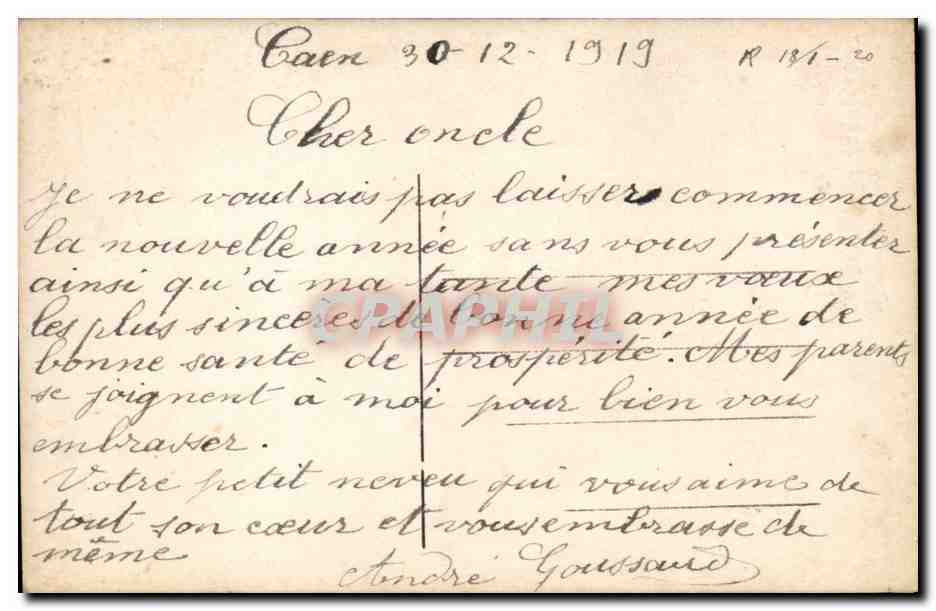 Caen 30-12-1919 R 13/1-20
Cher oncle
Je ne voudrais pas laisser commencer
la nouvelle année sans vous présenter
ainsi qu'à ma tante mes vœux
les plus sincères de bonne année de
bonne santé de prospérité. Mes parents
se joignent à moi pour bien vous
embrasser.
Votre petit neveu qui vous aime de
tout son cœur et vous embrasse de
même
André Goussaud
CPAPHIL